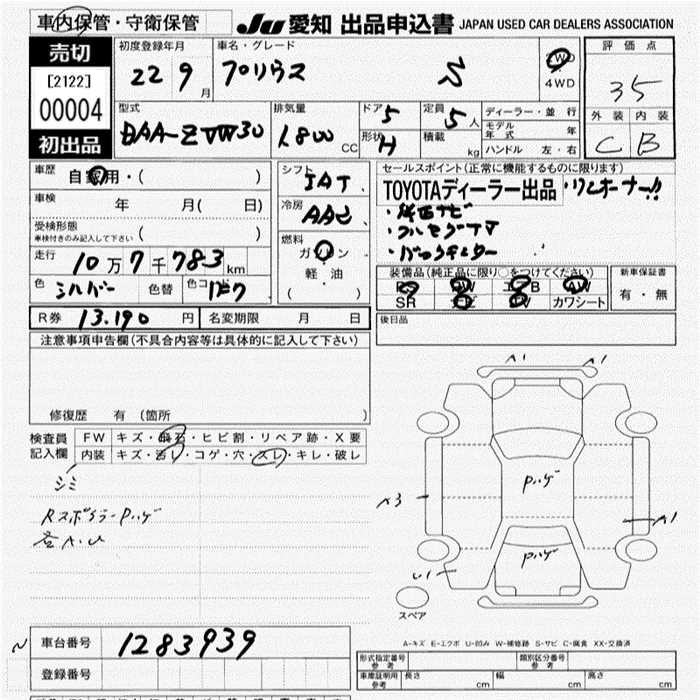 車内保管・守衛保管
JU 愛知 出品申込書 JAPAN USED CAR DEALERS ASSOCIATION
売切
[2122]
00004
初出品
初度登録年月
22 9 月
車名・グレード
プリウス S
2WD
4WD
評価点
35
外装 内装
C B
型式
DAA-ZVW30
排気量
1800 CC
ドア 5
形状 H
定員 5 人
積載 kg
ディーラー・並行
モデル年式 年
ハンドル 左・右
車歴
自家用・( )
車検 年 月( 日)
受検形態
車検付きのみ記入して下さい ( )
走行 10万7千783 km
色 シルバー 色替 色コ 1F7
シフト
IAT
冷房
AAC
燃料
ガソリン
軽・油
( )
セールスポイント(正常に機能するものに限ります)
TOYOTAディーラー出品・ワンオーナー!!
・純正ナビ
・フルセグTV
・バックモニター
装備品(純正品に限り○をつけてください)
PS PW エアB AW
SR ナビ TV カワシート
新車保証書
有・無
R券 13.190 円 名変期限 月 日
後日品
注意事項申告欄(不具合内容等は具体的に記入して下さい)
修復歴 有 (箇所 )
検査員記入欄
FW キズ・飛石・ヒビ割・リペア跡・X要
内装 キズ・汚レ・コゲ・穴・スレ・キレ・破レ
シミ
RスポイラーPハゲ
A.U
A1 A1
Pハゲ
A3
A1
Pハゲ
U1
スペア
A-キズ E-エクボ U-凹み W-補修跡 S-サビ C-腐食 XX-交換済
車台番号 1283939
登録番号
形式指定番号 参考
類別区分番号 参考
車庫証明用 参考 長さ cm 幅 cm 高さ cm